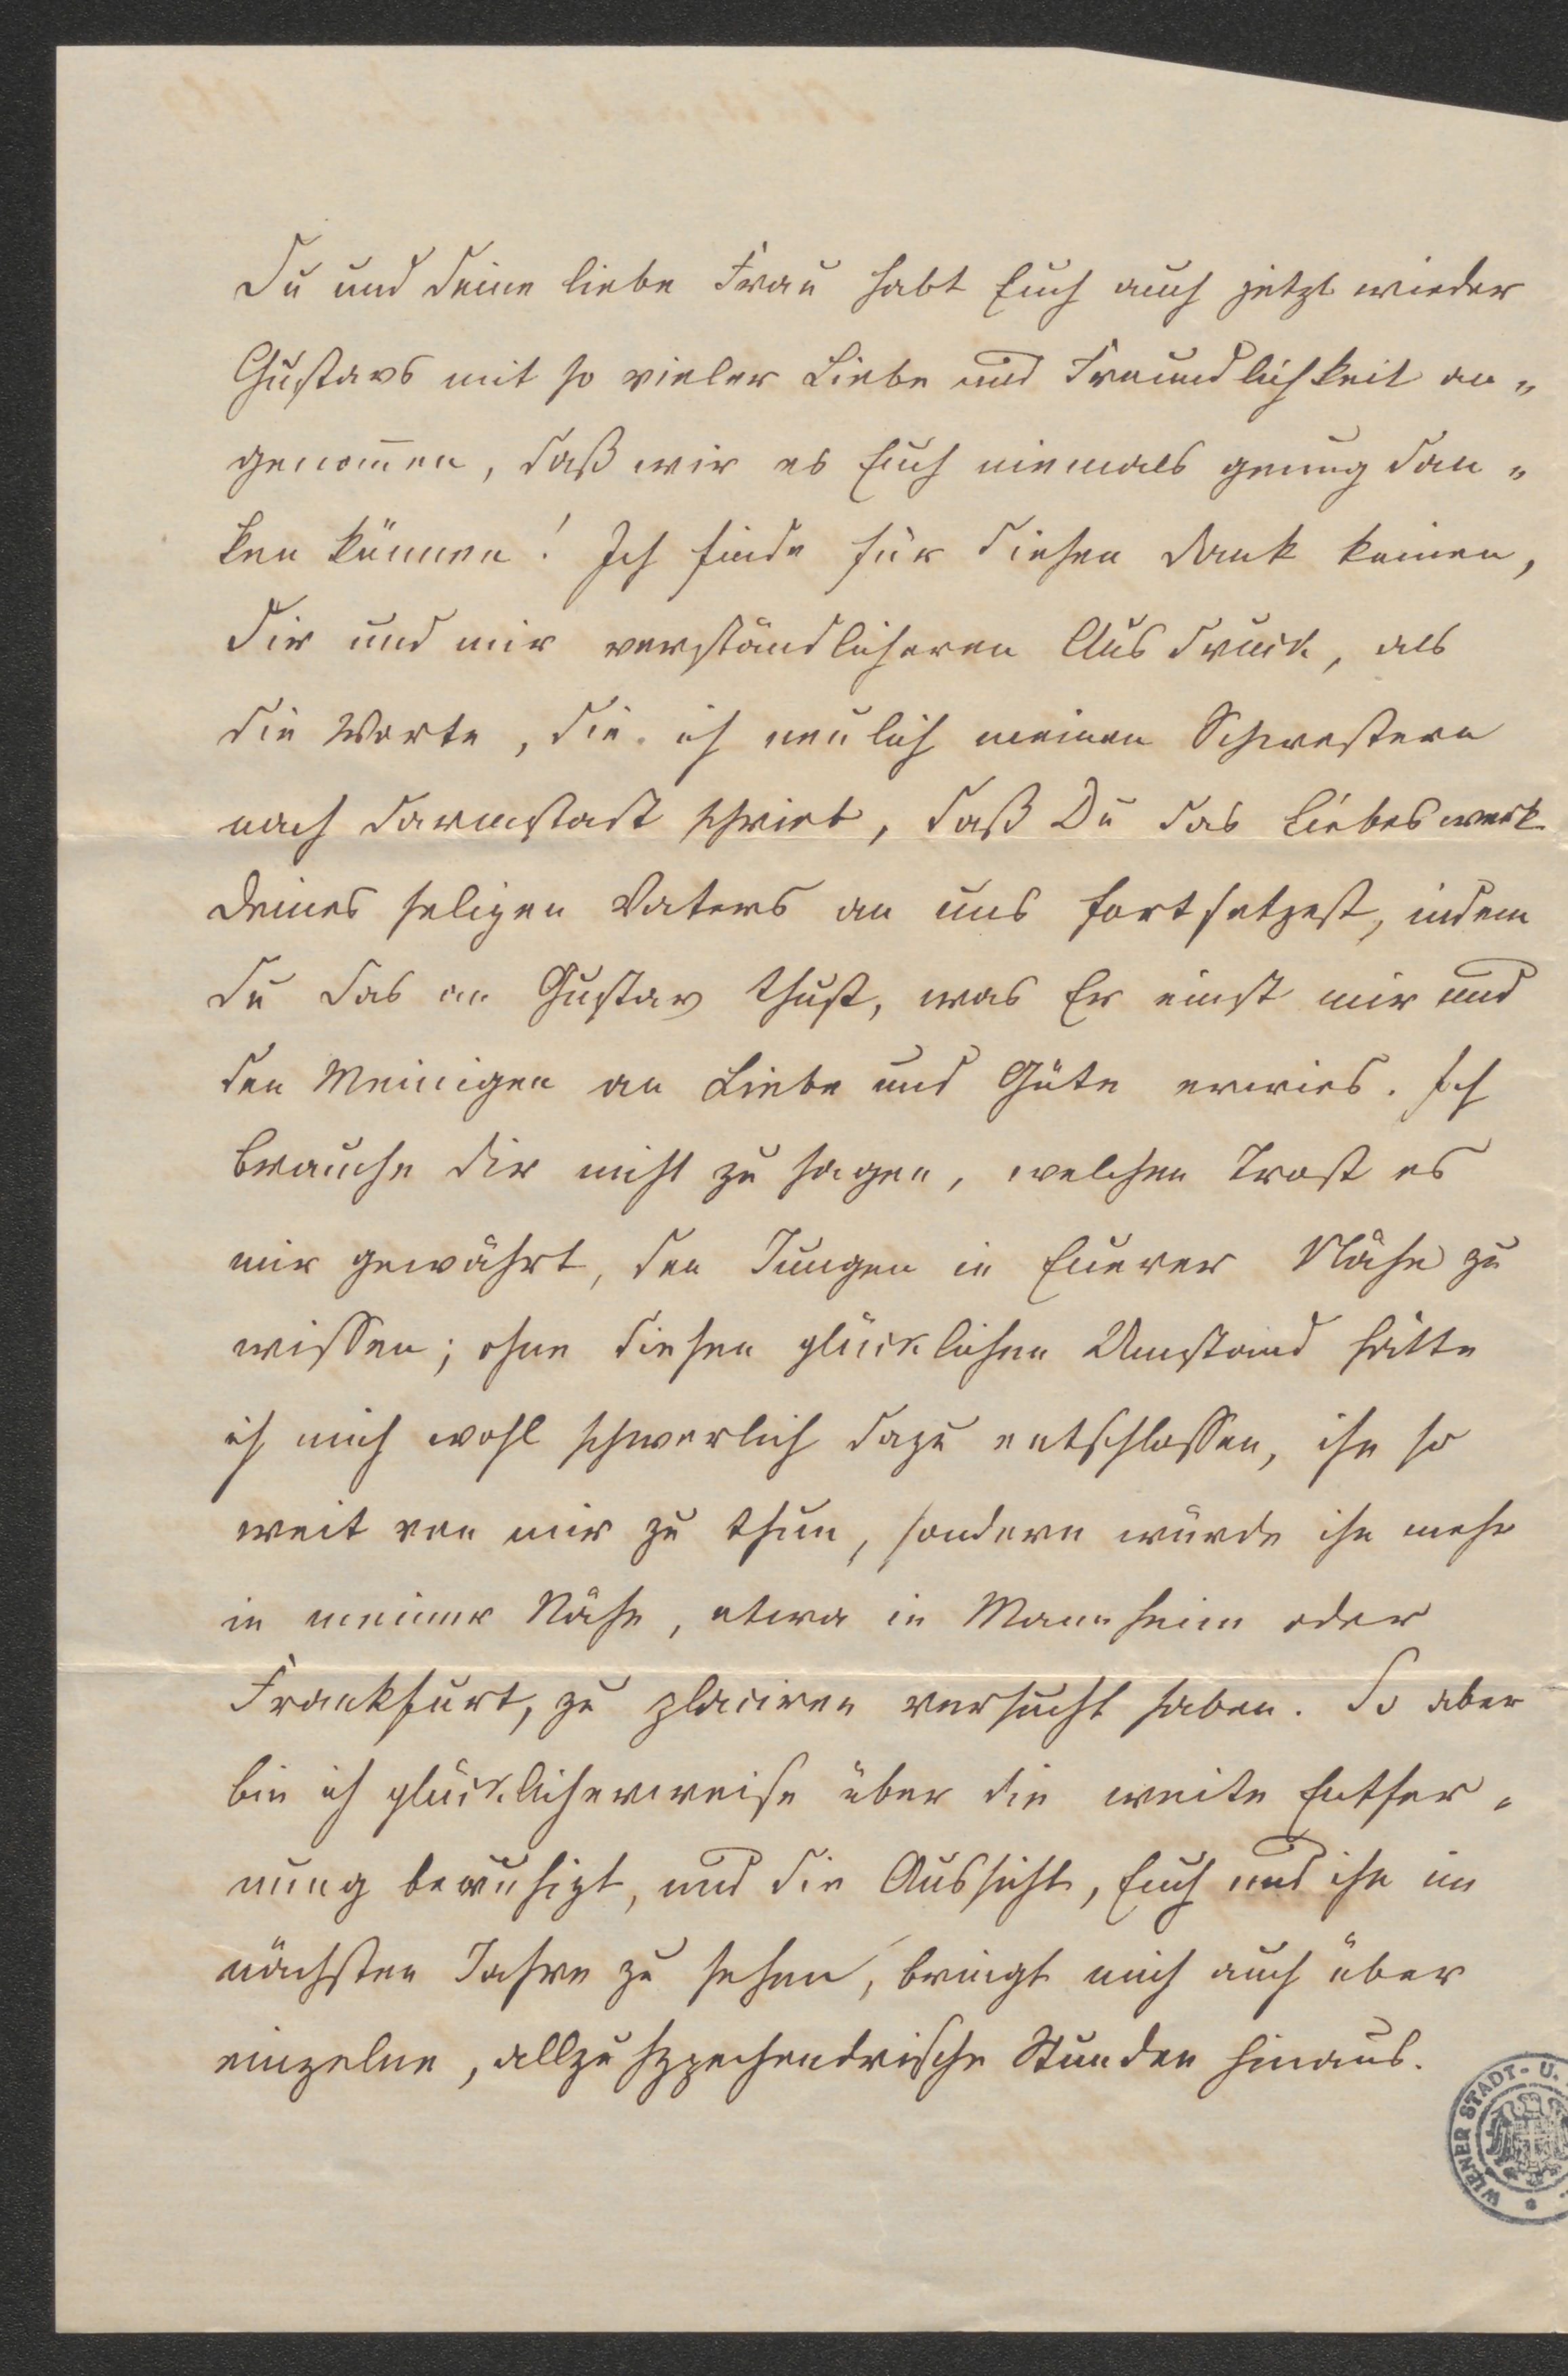 Du und Deine liebe Frau habt Euch auch jetzt wieder
Gustavs mit so vieler Liebe und Freundlichkeit an„
genom̅en, daß wir es Euch niemals genug dan„
ken können! Ich finde für diesen Dank keinen,
Dir und mir verständlicheren Ausdruck, als
die Worte, die ich neulich meinen Schwestern
nach Darmstadt schrieb, daß Du das Liebeswerk
Deines seligen Vaters an uns fortsetzest, indem
Du das an Gustav thust, was Er einst mir und
den Meinigen an Liebe und Güte erwies. Ich
brauche Dir nicht zu sagen, welchen Trost es
mir gewährt, den Jungen in Euerer Nähe zu
wissen; ohne diesen glücklichen Umstand hätte
ich mich wohl schwerlich dazu entschlossen, ihn so
weit von mir zu thun, sondern würde ihn mehr
in meiner Nähe, etwa in Mannheim oder
Frankfurt, zu placiren versucht haben. So aber
bin ich glücklicherweise über die weite Entfer„
nung beruhigt, und die Aussicht, Euch und ihn im
nächsten Jahre zu sehen, bringt mich auch über
einzelne, allzu hypochondrische Stunden hinaus.
WIENER STADT- U.